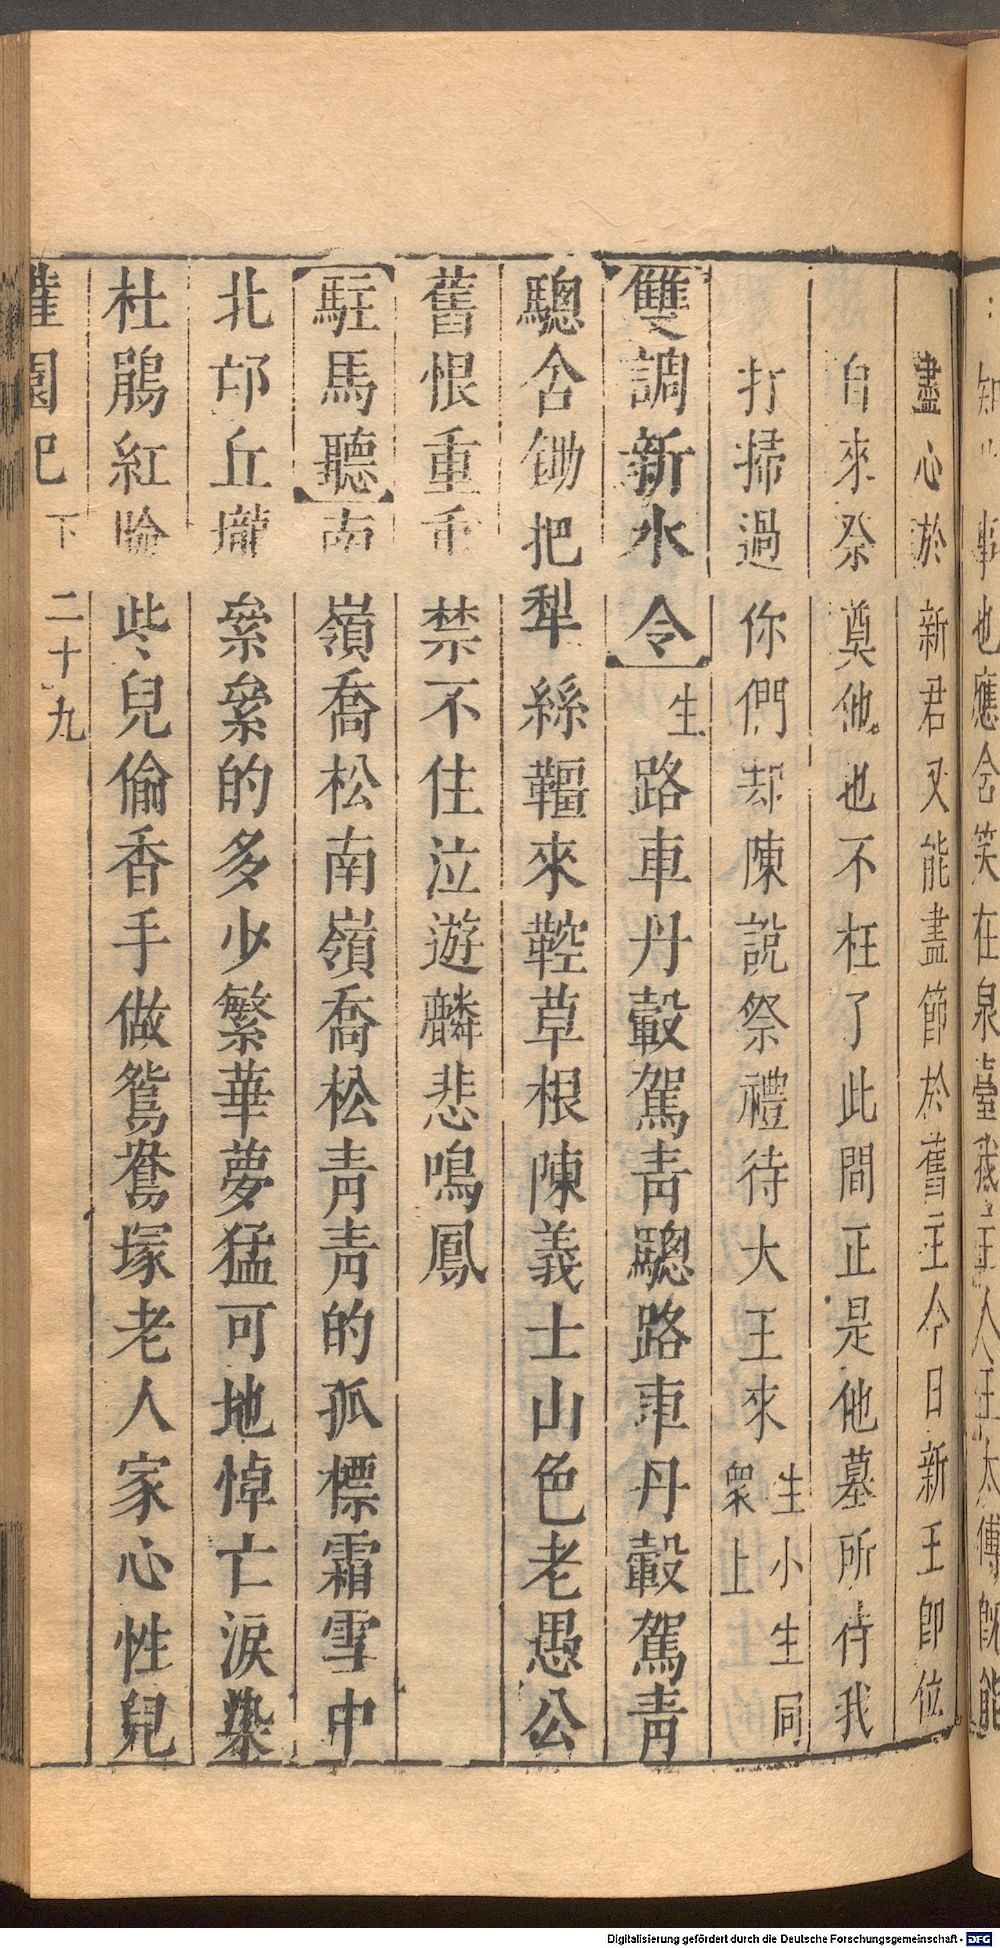 知
事也應含笑在泉臺我主人王太傅旣能
盡心於新君又能盡節於舊主今日新王卽位
自來祭奠他也不枉了此間正是他墓所待我
打掃過你們却陳說祭禮待大王來生小生同衆上
雙調新水令生路車丹轂駕青驄路車丹轂駕青
驄含鋤把犁絲韁來鞚草根陳義士山色老愚公
舊恨重重禁不住泣遊麟悲鳴鳳
駐馬聽南嶺喬松南嶺喬松靑靑的孤標霜雪中
北邙丘壠纍纍的多少繁華夢猛可地悼亡淚染
杜鵑紅險些兒偷香手做鴛鴦塚老人家心性兒
園記 下 二十九
Digitalisierung gefördert durch die Deutsche Forschungsgemeinschaft - DFG